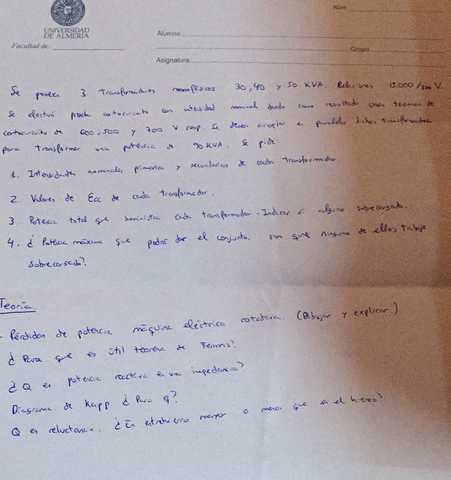 Núm.
UNIVERSIDAD
DE ALMERÍA
Facultad de
Alumno
Grupo
Asignatura
Se poseen 3 Transformadores monofásicos 30, 40 y 50 KVA. Relaciones 15.000/ V.
Se efectuó prueba cortocircuito con intensidad nominal dando como resultado unas tensiones de
cortocircuito de 600, 500 y 700 V resp. Se desea acoplar en paralelo dichos transformadores
para transformar una potencia de 90 KVA. Se pide
1. Intensidades nominales primarias y secundarias de cada transformador
2. Valores de Ecc de cada transformador.
3. Potencia total que suministra cada transformador. Indicar si alguno sobrecargado.
4. ¿ Potencia máxima que podrá dar el conjunto sin que ninguno de ellos trabaje
sobrecargado?
Teoría
- Pérdidas de potencia máquina eléctrica rotativa. (Dibujar y explicar.)
¿ Para qué es útil teorema de Ferraris?
¿ Q es potencia reactiva en una impedancia?
Diagrama de Kapp. ¿ Para q?
Q es reluctancia. ¿ En entrehierro mayor o menor que en el hierro?